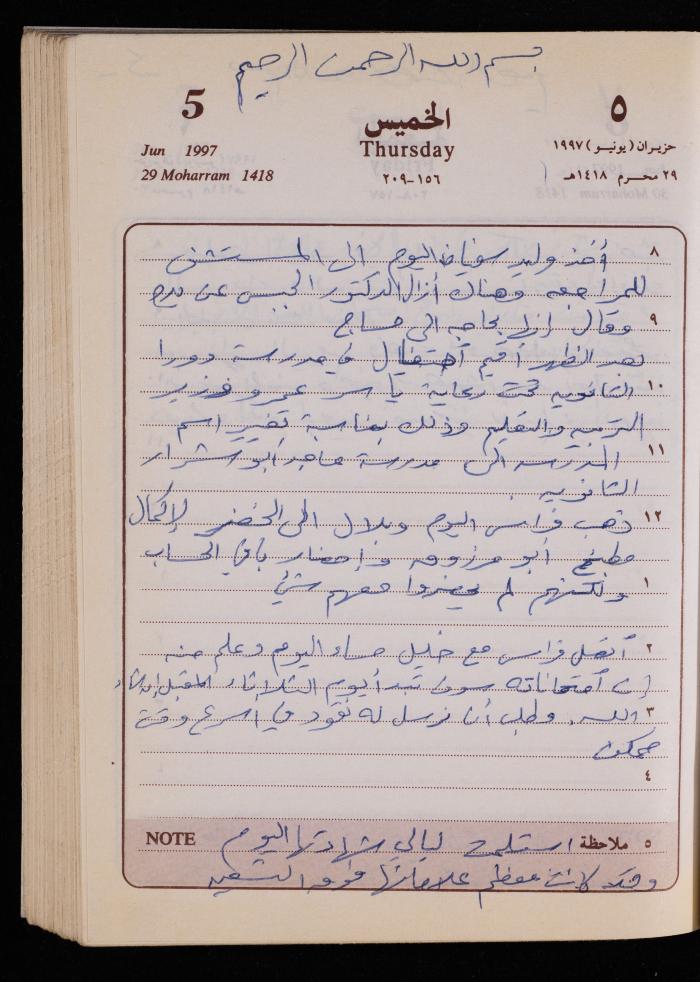 بسم الله الرحمن الرحيم
5
الخميس
٥
Jun 1997
Thursday
حزيران (يونيو) ١٩٩٧
29 Moharram 1418
٢٠٩-١٥٦
٢٩ محرم ١٤١٨هـ
٨ أخذ وليد سفيان اليوم الى المستشفى
للمراجعه وهناك أزال الدكتور الجبس عن يده
٩ وقال إنه بحاجه الى مساج
بعد الظهر أقيم أحتفال في مدرسة دورا
١٠ الثانويه تحت رعاية ياسر عمرو وزير
التربيه والتعليم وذلك بمناسبة تغيير اسم
١١ المدرسه الى مدرسة ماجد أبو شرار
الثانويه .
١٢ ذهب فراس اليوم وبلال الى الخضر لإكمال
مطبخ ابو مرزوقه وإحضار باقي الحساب
١ ولكنهم لم يحضروا معهم شيئ
٢ أتصل فراس مع خليل مساء اليوم وعلم منه
إن أمتحاناته سوف تبدأ يوم الثلاثاء المقبل إنشاء
٣ الله. وطلب أن نرسل له نقود في اسرع وقت
ممكن
٤
NOTE
٥ ملاحظة استلمت ليالي شهادتها اليوم
وقد كانت معظم علاماتها فوق التسعين